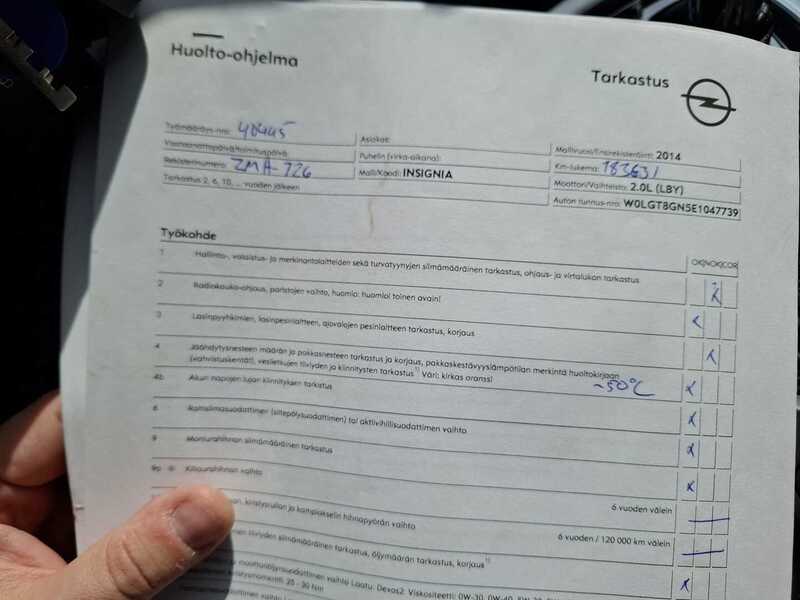 Huolto-ohjelma
Tarkastus
Työmääräys-nro: 40445
Asiakas:
Mallivuosi/Ensirekisteröinti: 2014
Vastaanottopäivä/toimituspäivä:
Puhelin (virka-aikana):
Km-lukema: 183631
Rekisterinumero: ZMA-726
Malli/Koodi: INSIGNIA
Moottori/Vaihteisto: 2.0L (LBY)
Tarkastus 2, 6, 10, ... vuoden jälkeen
Auton tunnus-nro: W0LGT8GN5E1047739
Työkohde
OK NOK COR
1 Hallinta-, valaistus- ja merkinantolaitteiden sekä turvatyynyjen silmämääräinen tarkastus, ohjaus- ja virtalukon tarkastus
2 Radiokauko-ohjaus, paristojen vaihto, huomio: huomioi toinen avain!
3 Lasinpyyhkimien, lasinpesinlaitteen, ajovalojen pesinlaitteen tarkastus, korjaus
4 Jäähdytysnesteen määrän ja pakkasnesteen tarkastus ja korjaus, pakkaskestävyyslämpötilan merkintä huoltokirjaan
(vahvistuskentät), vesiletkujen tiiviyden ja kiinnitysten tarkastus 1) Väri: kirkas oranssi
~50°C
4b Akun napojen lujan kiinnityksen tarkastus
8 Raitisilmasuodattimen (siitepölysuodattimen) tai aktiivihiilisuodattimen vaihto
9 Moniurahihnan silmämääräinen tarkastus
9a Kiilaurahihnan vaihto
6 vuoden välein
kiristysrullan ja kampiakselin hihnapyörän vaihto
6 vuoden / 120 000 km välein
tiiviyden silmämääräinen tarkastus, öljymäärän tarkastus, korjaus 1)
moottoriöljynsuodattimen vaihto Laatu: Dexos2. Viskositeetti: 0W-30, 0W-40,